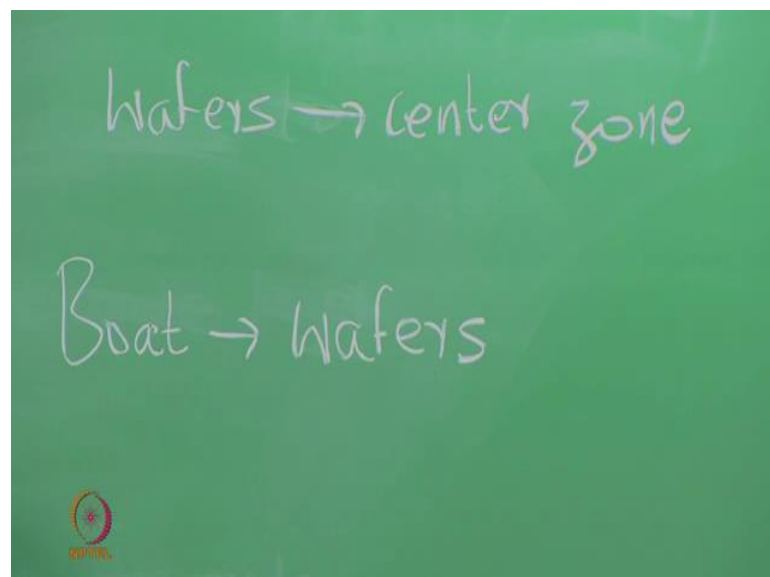 Wafers → center zone
Boat → Wafers
NPTEL